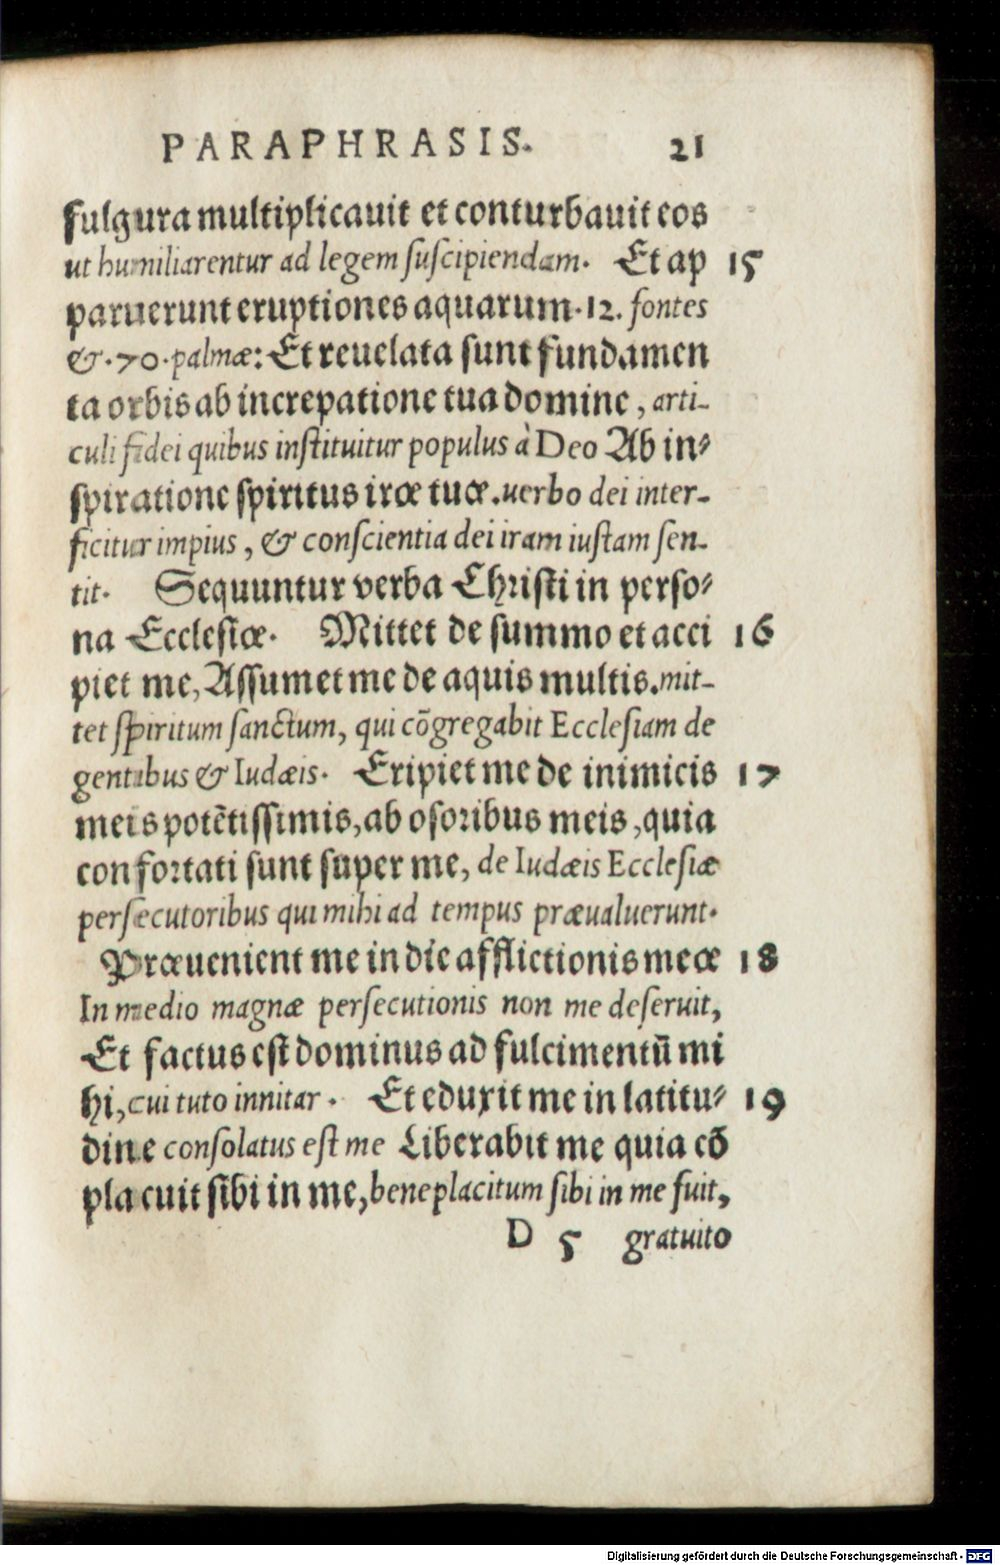 PARAPHRASIS. 21
fulgura multiplicauit et conturbauit eos
ut humiliarentur ad legem suscipiendam. Et ap 15
paruerunt eruptiones aquarum. 12. fontes
&. 70. palmæ: Et reuelata sunt fundamen
ta orbis ab increpatione tua domine, arti-
culi fidei quibus instituitur populus à Deo Ab in-
spiratione spiritus iræ tuæ. uerbo dei inter-
ficitur impius, & conscientia dei iram iustam sen-
tit. Sequuntur verba Christi in perso-
na Ecclesiæ. Mittet de summo et acci 16
piet me, Assumet me de aquis multis. mit-
tet spiritum sanctum, qui cõgregabit Ecclesiam de
gentibus & Iudæis. Eripiet me de inimicis 17
meis potẽtissimis, ab osoribus meis, quia
confortati sunt super me, de Iudæis Ecclesiæ
persecutoribus qui mihi ad tempus præualuerunt.
Præuenient me in die afflictionis meæ 18
In medio magnæ persecutionis non me deseruit,
Et factus est dominus ad fulcimentũ mi
hi, cui tuto innitar. Et eduxit me in latitu- 19
dine consolatus est me Liberabit me quia cõ
placuit sibi in me, beneplacitum sibi in me fuit,
D 5 gratuito
Digitalisierung gefördert durch die Deutsche Forschungsgemeinschaft - DFG